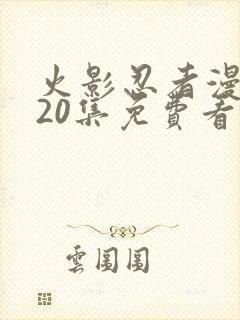 火影忍者漫
20集免費看
雲圖圖